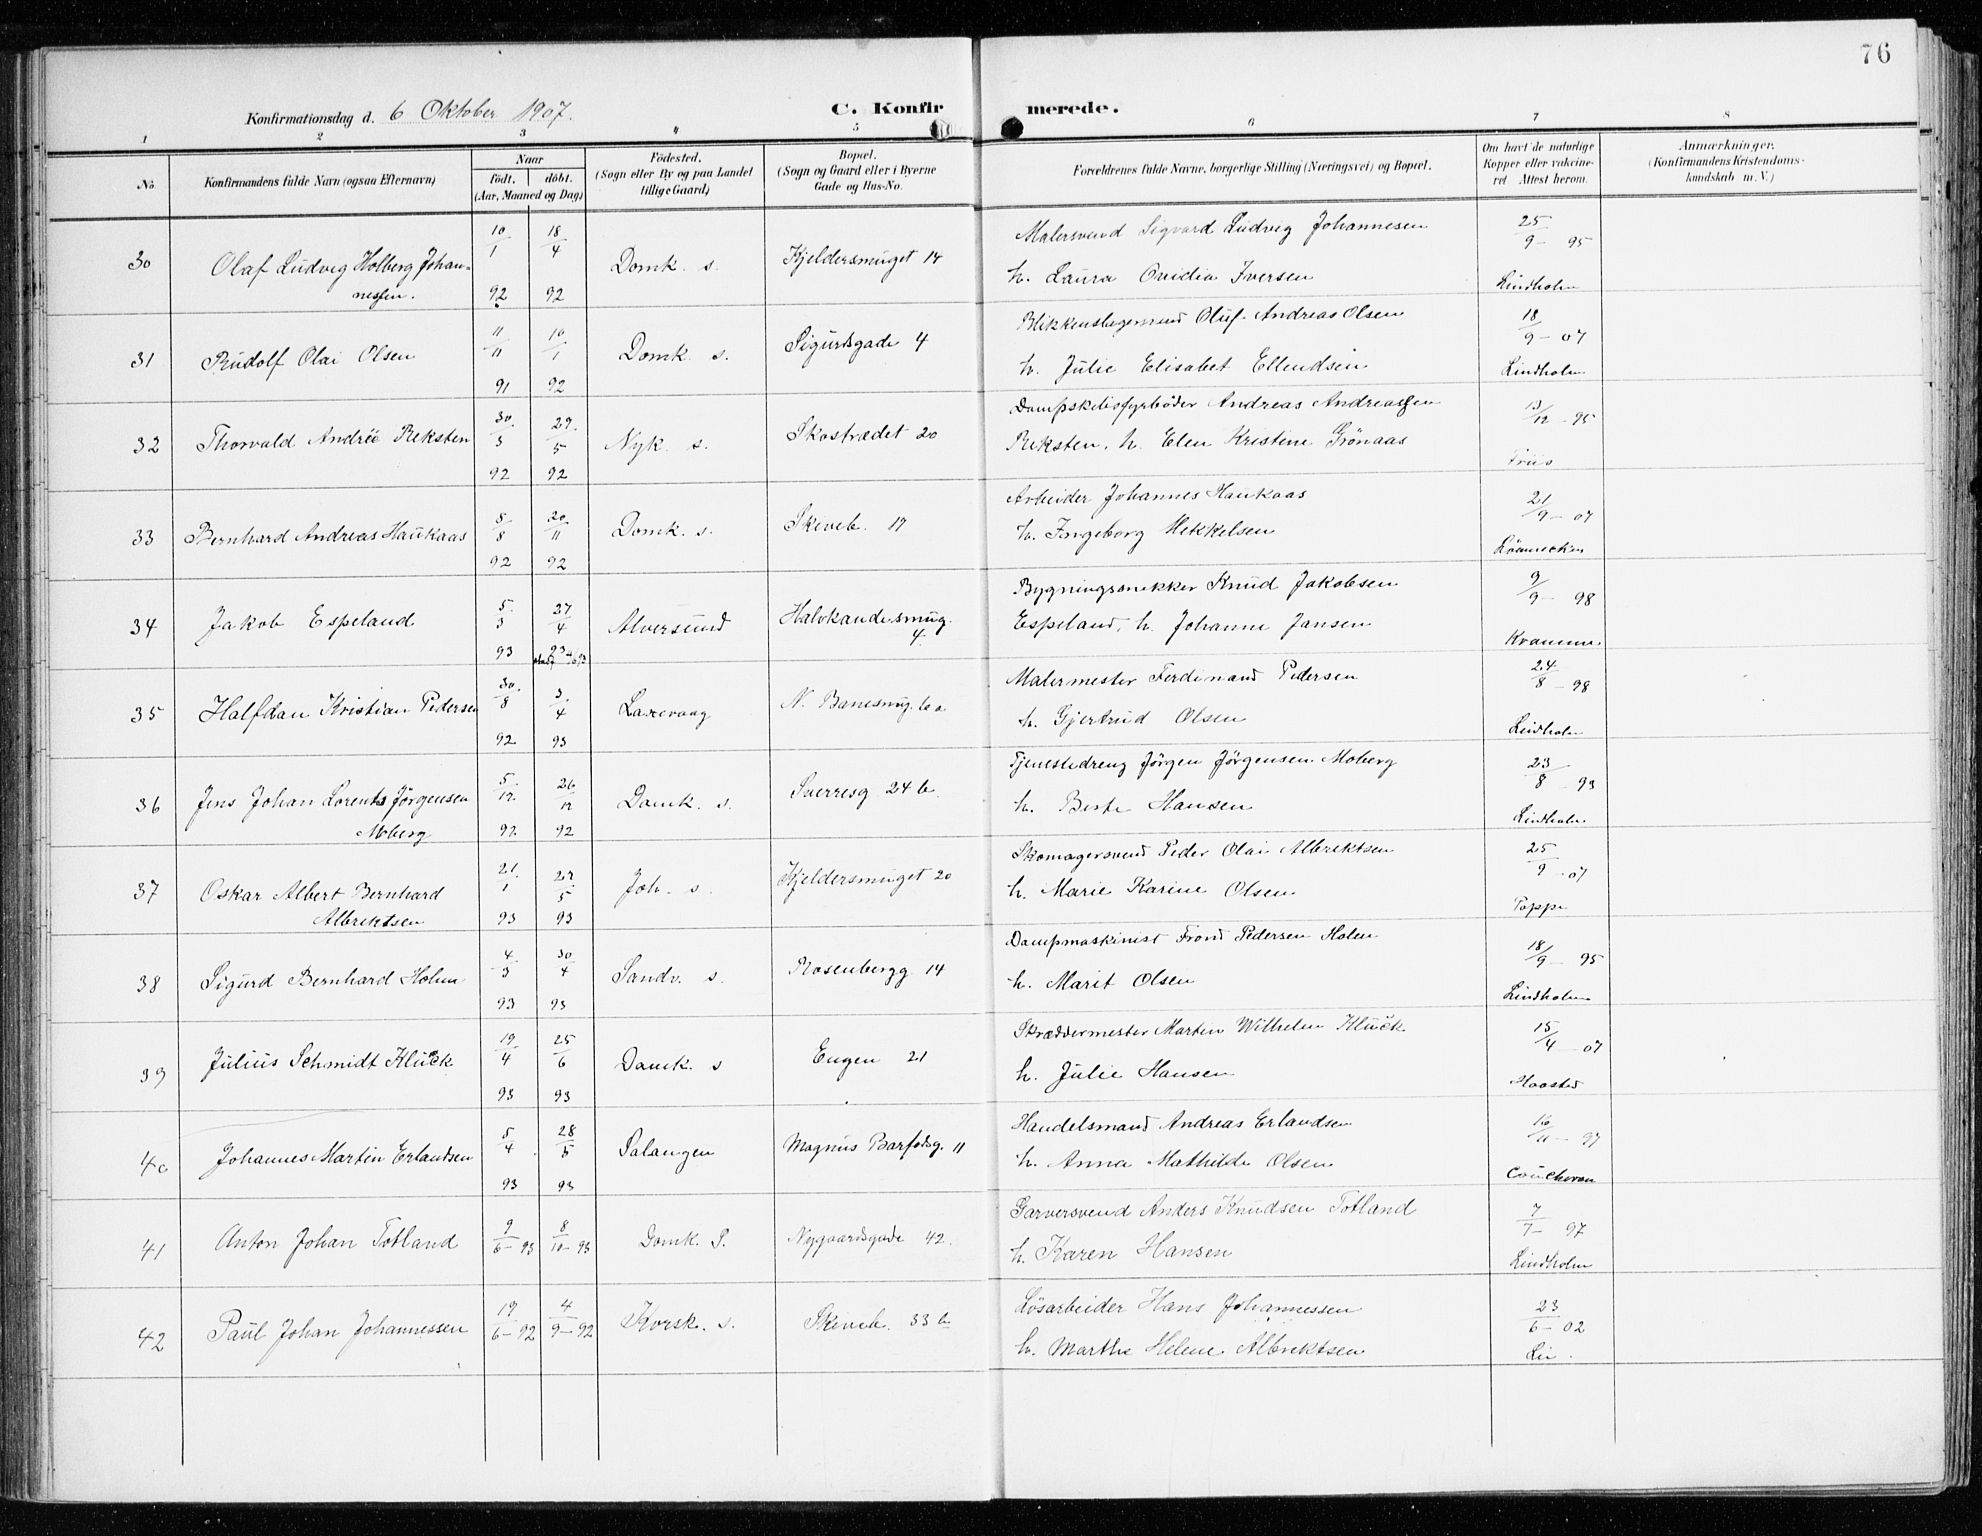 76
Konfirmationsdag d. 6 Oktober 1907.
C. Konfirmerede.
1 2 3 4 5 6 7 8
No. Konfirmandens fulde Navn (ogsaa Efternavn) Naar født. døbt. (Aar, Maaned og Dag) Fødested. (Sogn eller By og paa Landet tillige Gaard) Bopæl. (Sogn og Gaard eller i Byerne Gade og Hus-No. Forældrenes fulde Navne, borgerlige Stilling (Næringsvei) og Bopæl. Om havt de naturlige Kopper eller vakcineret. Attest herom. Anmærkninger. (Konfirmandens Kristendomskundskab m. V.)
30 Olaf Ludvig Holberg Johannessen. 10/1 92 18/4 92 Domk. s. Kjeldersmuget 14 Malersvend Sigvard Ludvig Johannesen
h. Laura Ovidia Iversen 25/9 - 95 Lindholm
31 Rudolf Olai Olsen 11/11 91 10/1 92 Domk. s. Sigurdsgade 4 Blikkenslagermand Oluf Andreas Olsen
h. Julie Elisabet Ellendsen 18/9 - 07 Lindholm
32 Thorvald Andrée Reksten 30/3 92 29/5 92 Nyk. s. Skostrædet 20 Dampskibsfyrbøder Andreas Andreassen
Reksten, h. Elen Kristine Grönaas 13/12 - 95 Friis
33 Bernhard Andreas Haukaas 5/8 92 20/11 92 Domk. s. Skeveb. 17 Arbeider Johannes Haukaas
h. Ingeborg Mikkelsen 21/9 - 07
34 Jakob Espeland 5/3 93 27/4 Alversund Halvkandesmug. 4. Bygningssnekker Knud Jakobsen
Espeland, h. Johanne Jansen 9/9 - 98 Kvamme
35 Halfdan Kristian Pedersen 30/8 92 3/4 93 Laxevaag N. Banesmug. 6a Malermester Ferdinand Pedersen
h. Gjertrud Olsen 24/8 - 98 Lindholm
36 Jens Johan Lorents Jörgensen Moberg 5/12 92 26/12 92 Domk. s. Sverresg 24 b. Tjenestedreng Jörgen Jörgensen Moberg
h. Berte Hansen 23/8 - 93 Lindholm
37 Oskar Albert Bernhard Albrektsen 21/1 93 22/5 93 Joh. s. Kjeldersmuget 20 Skomagersvend Peder Olai Albrektsen
h. Marie Karine Olsen 25/9 - 07 Poppe
38 Sigurd Bernhard Holm 4/3 93 30/4 93 Sandv. s. Rosenbergg 14 Dampmaskinist Trond Pedersen Holm
h. Marit Olsen 18/9 - 95 Lindholm
39 Julius Schmidt Kluck 19/4 93 25/6 93 Domk. s Engen 21 Skræddermester Marten Wilhelm Kluck
h. Julie Hansen 15/4 - 07 Haasted
40 Johannes Martin Erlandsen 5/4 93 28/5 93 Salangen Magnus Barfodsg. 11 Handelsmand Andreas Erlandsen
h. Anna Mathilde Olsen 16/11 - 97 Coucheron
41 Anton Johan Totland 9/6 - 93 8/10 - 93 Domk. S. Nygaardsgade 42. Garversvend Anders Knudsen Totland
h. Karen Hansen 7/7 - 97 Lindholm
42 Paul Johan Johannessen 19/6 - 92 4/9 - 92 Korsk. s. Skeveb. 33 b Løsarbeider Hans Johannessen
h. Marthe Helene Albrektsen 23/6 - 02 Lie.